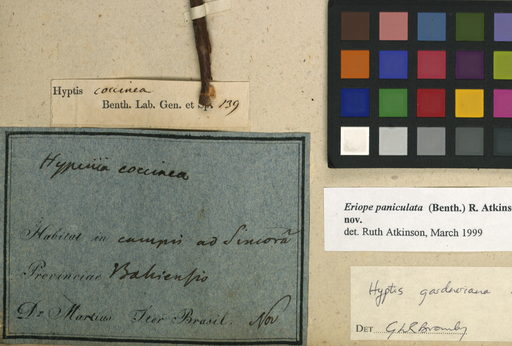 Hyptis coccinea
Benth. Lab. Gen. et Sp. 139
Hypenia coccinea
Habitat in campis ad Sincorâ
Provinciae Bahiensis
Dr Martius Iter Brasil. Nov
Eriope paniculata (Benth.) R. Atkins
nov.
det. Ruth Atkinson, March 1999
Hyptis gardneriana
DET G.L.R. Bromley